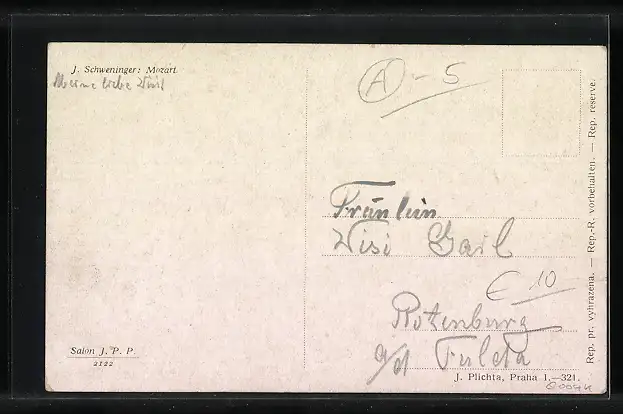 J. Schweninger: Mozart.
Meine liebe Wisi
A - 5
Fräulein
Wisi Gail
€ 10
Rotenburg
a/d Fulda
Salon J. P. P.
2122
J. Plichta, Praha 1.—321.
Rep. pr. vyhrazena. — Rep.-R. vorbehalten. — Rep. reserve.